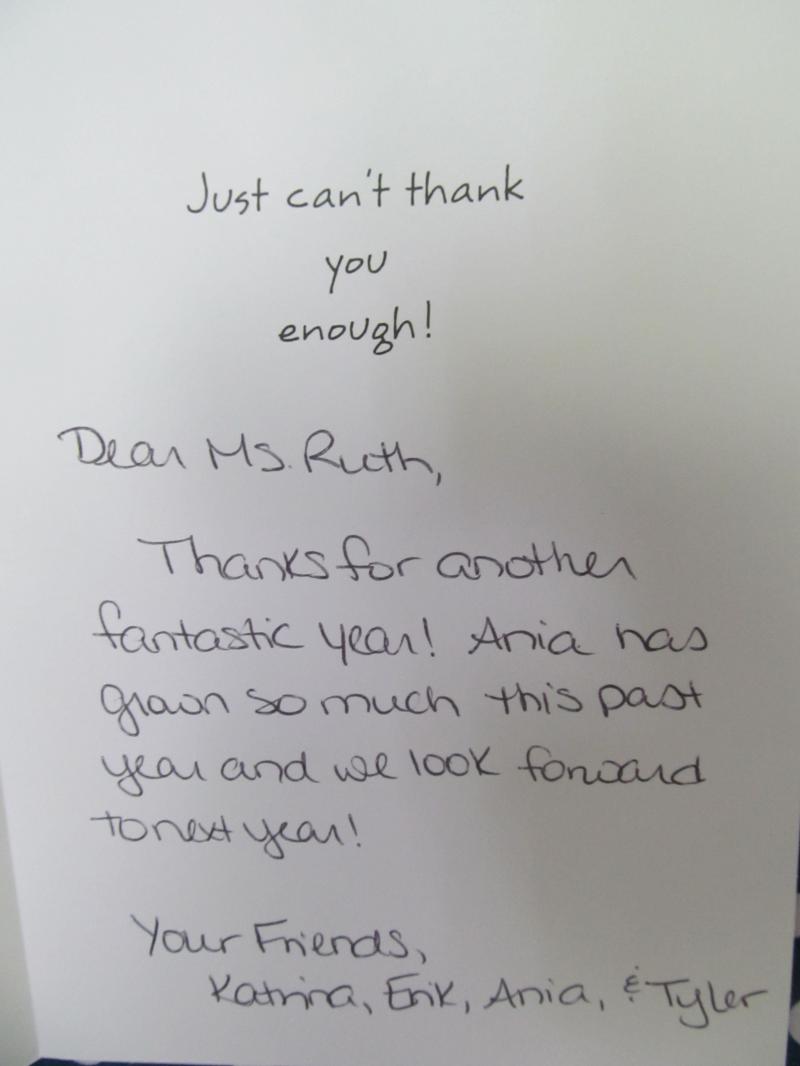 Just can't thank
you
enough!
Dear Ms. Ruth,
Thanks for another
fantastic year! Ania has
grown so much this past
year and we look forward
to next year!
Your Friends,
Katrina, Erik, Ania, & Tyler